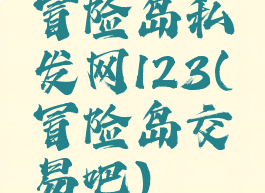 冒险岛私
发网123(
冒险岛交
易吧)